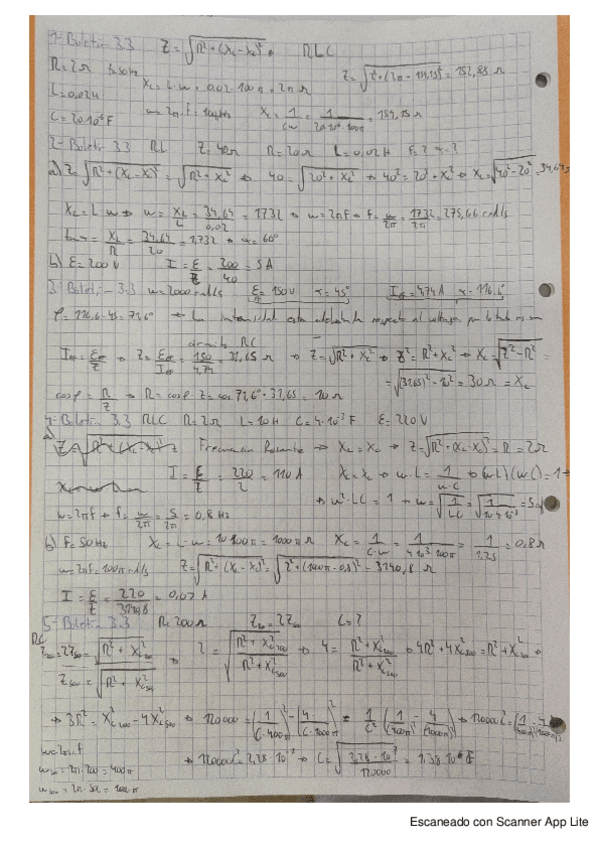 1- Boletín 3.3 Z = √R² + (XL - Xc)² RLC
R = 2Ω f = 50Hz Z = √2² + (2π - 159,15)² = 152,88 Ω
L = 0,02H XL = L·ω = 0,02·100π = 2πΩ
C = 20·10⁻⁶F ω = 2π·F = 100π Xc = 1/Cω = 1/20·10⁻⁶·100π = 159,15Ω
2- Boletín 3.3 RL Z = 40Ω R = 20Ω L = 0,02H F = ? α = ?
a) Z = √R² + (XL - Xc)² = √R² + XL² → 40 = √20² + XL² → 40² = 20² + XL² → XL = √40² - 20² = 34,64Ω
XL = L ω → ω = XL/L = 34,64/0,02 = 1732 → ω = 2πF → F = ω/2π = 1732/2π = 275,66 rad/s
tan = XL/R = 34,64/20 = 1,732 → α = 60°
b) E = 200V I = E/Z = 200/40 = 5A
3- Boletín 3.3 ω = 2000 rad/s E = 150V α = 45° Ief = 4,74A α = 116,6°
φ = 116,6 - 45 = 71,6° → La intensidad está adelantada respecto al voltaje, por lo tanto es un
circuito RC
Ief = Eef/Z → Z = Eef/Ief = 150/4,74 = 31,65 Ω → Z = √R² + Xc² → Z² = R² + Xc² → Xc = √Z² - R² =
= √(31,65)² - 10² = 30Ω = Xc
cosφ = R/Z → R = cosφ·Z = cos 71,6°·31,65 = 10Ω
4- Boletín 3.3 RLC R = 2Ω L = 10H C = 4·10⁻³F E = 220V
a) Frecuencia Resonante → XL = Xc → Z = √R² + (XL - Xc)² = R = 2Ω
I = E/Z = 220/2 = 110A XL = Xc → ω·L = 1/ω·C → (ωL)(ωC) = 1 →
→ ω²·LC = 1 → ω = √1/LC = √1/10·4·10⁻³ = 5
ω = 2πf → f = ω/2π = 5/2π = 0,8Hz
b) F = 50Hz XL = L·ω = 10·100π = 1000πΩ Xc = 1/C·ω = 1/4·10⁻³·100π = 1/1,25 = 0,8Ω
ω = 2πF = 100π rad/s Z = √R² + (XL - Xc)² = √2² + (1000π - 0,8)² = 3140,8 Ω
I = E/Z = 220/3140,8 = 0,07A
5- Boletín 3.3 R = 200Ω C = ?
RC
2 = √R² + Xc²200/√R² + Xc²500 → 4 = R² + Xc²200/R² + Xc²500 → 4R² + 4Xc²500 = R² + Xc²200 →
→ 3R² = Xc²200 - 4Xc²500 → 120000 = (1/C·400π)² - 4/(C·1000π)² = 1/C² (1/(400π)² - 4/(1000π)²) →
ω = 2πf → 120000C² = 2,28·10⁻⁷ → C = √2,28·10⁻⁷/120000 = 1,38·10⁻⁶F
ω200 = 2π·200 = 400π
Escaneado con Scanner App Lite